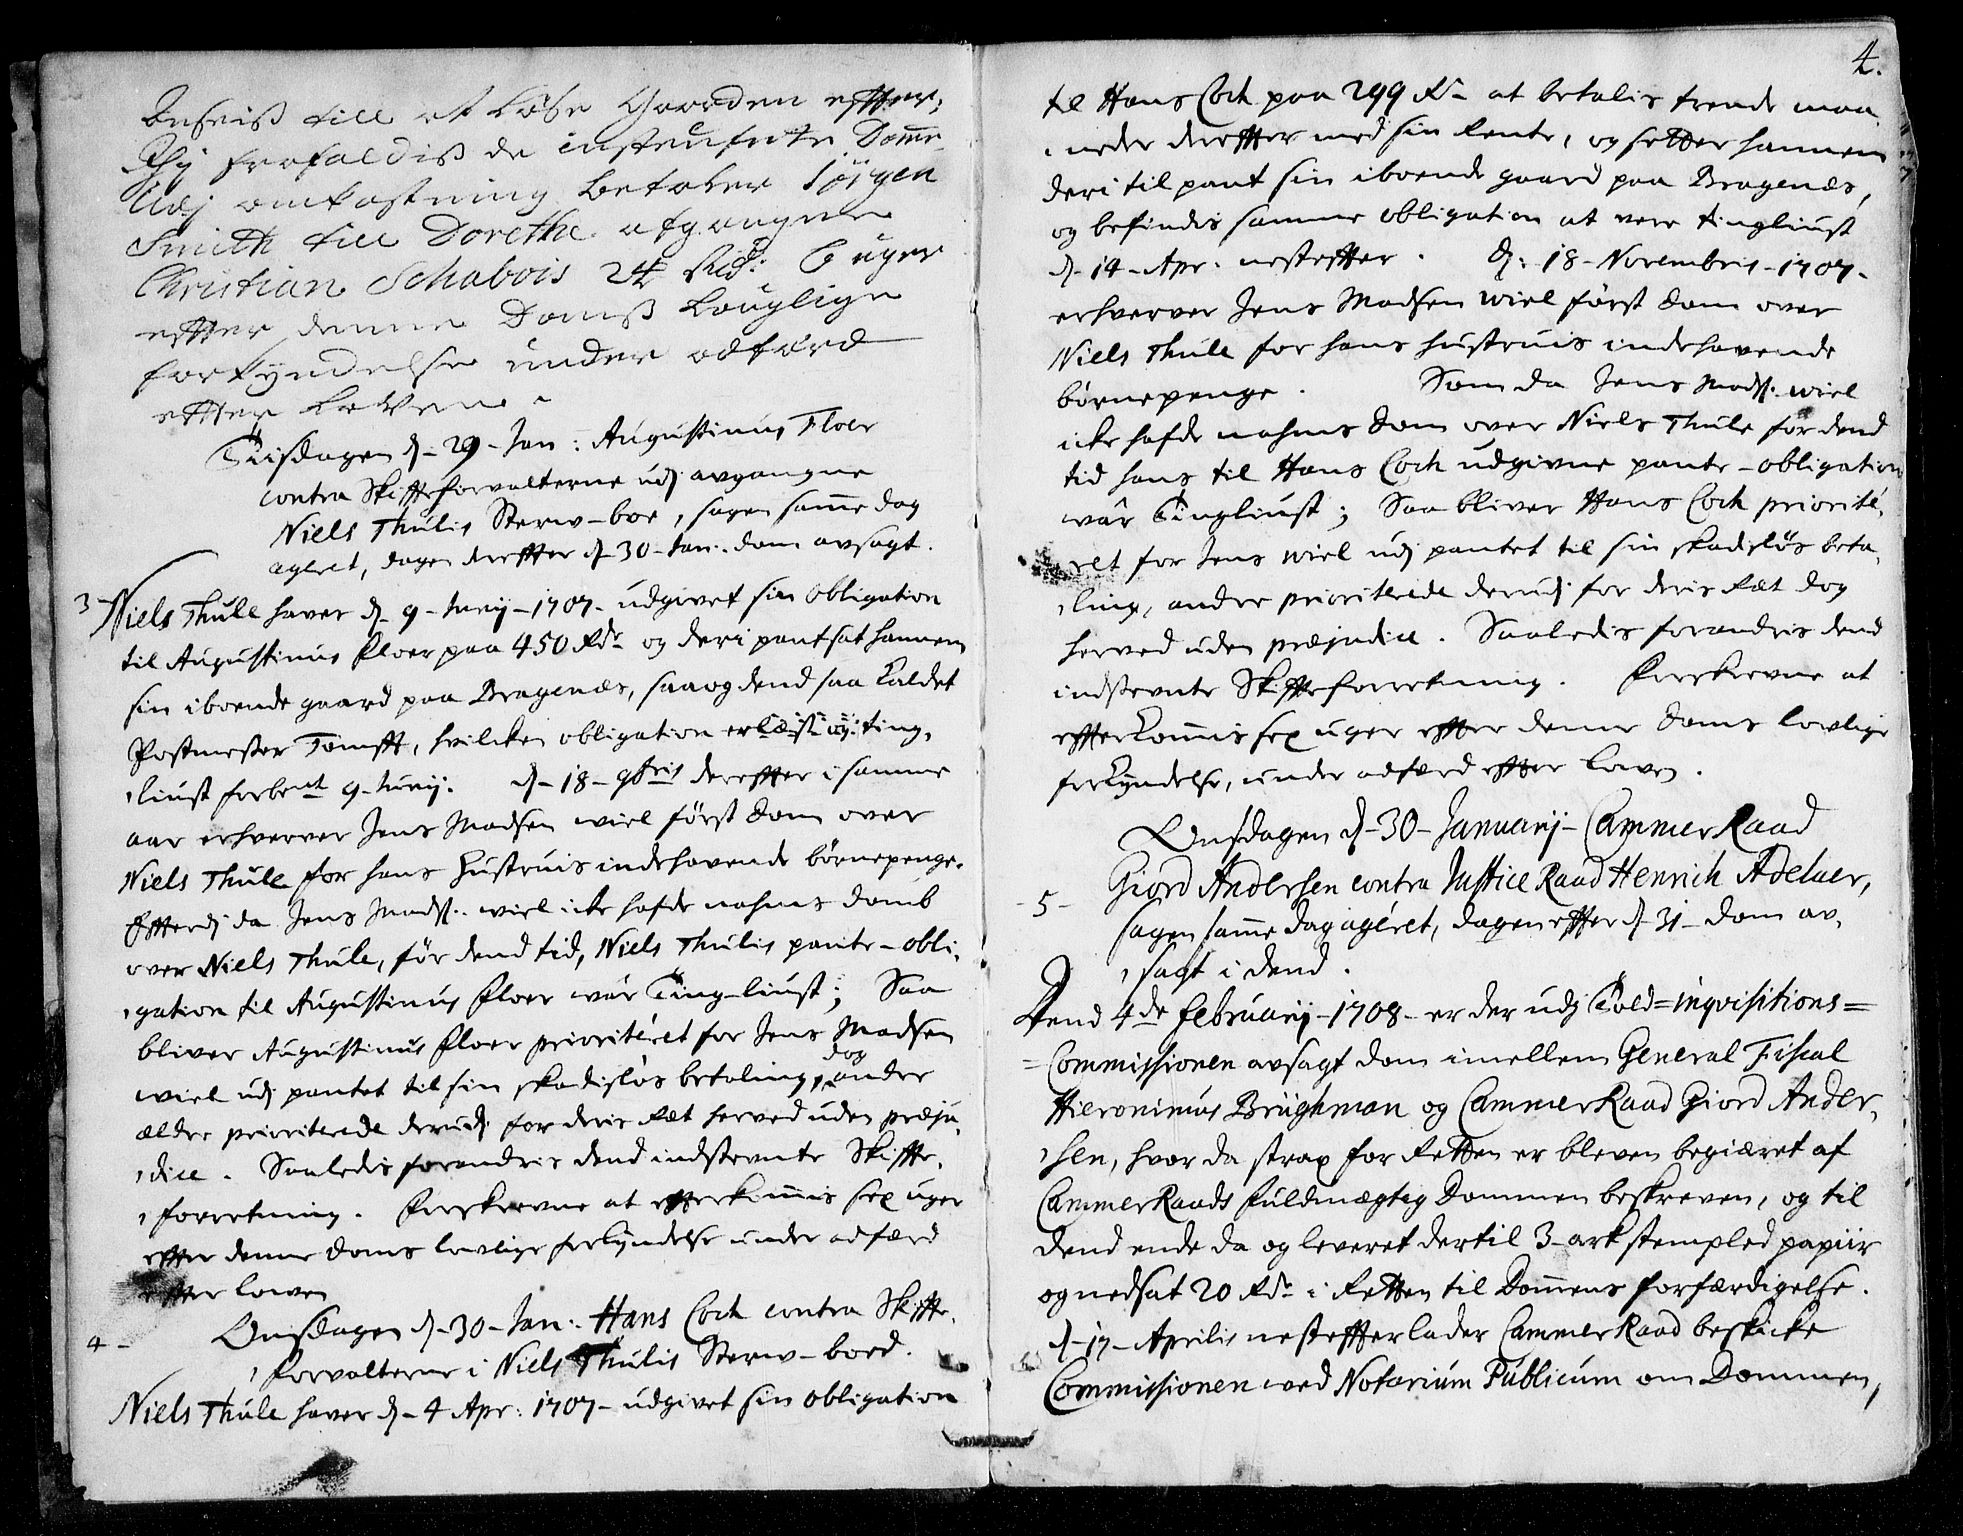 till at løse Gaarden effter,
Thj frafaldiß de instefnte Domme
Udj omkostning betaler Jörgen
Smith till Dorethe afgangne
Christian Schabois 24 Rd: 6 uger
effter denne Domß louglige
forkyndelse under adferd
effter Lowen
Tiisdagen d. 29 Jan: Augustinus Floer
contra Skifteforvalterne udj avgangne
Niels Thulis Sterw-boe, sagen same dag
ageret, dagen dereffter d. 30 Jan: dom avsagt.
3 Niels Thule haver d. 9 Junij 1707 udgivet sin obligation
til Augustinus Floer paa 450 Rdr og deri pantsat hannem
sin iboende gaard paa Bragenæs, saa og dend saa kaldet
Postmester Tomfft, hvilcken obligation er læst og ting,
liust forbent 9 Junij. d. 18 9bris dereffter i samme
aar erhverver Jens Madsen Wiel först dom over
Niels Thule for hans Hustruis indehavende börnepenge.
Efterdj da Jens Mads: Wiel icke hafde nogens domb
over Niels Thule, för dend tid, Niels Thulis pante-obli,
gation til Augustinus Floer war Ting-liust; Saa
bliver Augustinus Floer prioritéret for Jens Madsen
Wiel udj pantet til sin skadislös betaling, dog andre
ældre prioriterede derudj for deris Ræt herved uden præju,
dice. Saaledis forandris dend indstevnte Skiffte,
forretning. Forskrevne at effterkommis sex uger
effter denne doms lovlige forkyndelse under adfærd
effter Lowen
4 Onsdagen d. 30 Jan: Hans Coch contra Skiffte,
forvalterne i Niels Thulis Sterw-boed.
Niels Thule haver d. 4 Apr: 1707 udgivet sin obligation
4.
til Hans Coch paa 299 Rdr at betalis trende maa,
neder dereffter med sin Rente, og setter hannem
deri til pant sin iboende gaard paa Bragenæs,
og befindis samme obligation at vere tingliust
d. 14 Apr. nesteffter. d: 18 Novembris 1707
erhverver Jens Madsen Wiel först dom over
Niels Thule for hans hustruis indehavende
börnepenge. Som da Jens Mads: Wiel
icke hafde nogens dom over Niels Thule för dend
tid hans til Hans Coch udgivne pante-obligation
wâr Tingliust; Saa bliver Hans Coch priorité,
ret for Jens Wiel udj pantet til sin skadislös beta,
ling, andre prioriterede derudj for deris Ræt dog
herved uden præjudice. Saaledis forandris dend
indstevnte Skiffteforretning. Forskrevne at
effterkommis sex uger effter denne doms lovlige
forkyndelse, under adfærd effter Lowen.
Onsdagen d. 30 Januarij Cammer Raad
5 Giord Andersen contra Justice Raad Henrich Adelaer,
sagen same dag ageret, dagen effter d. 31 dom av,
sagt i dend.
Dend 4de februarij 1708 er der udj Told=inqvisitions=
=Commissionen avsagt dom imellem General Fiscal
Hieronimus Brüghman og Cammer Raad Giord Ander,
sen, hvor da strax for Retten er bleven begiæret af
Cammer Raads fuldmægtig Dommen beskreven, og til
dend ende da og leveret dertil 3 ark stempled papiir
og nedsat 20 Rdr i Retten til Domens forfærdigelse.
d. 17 Aprilis nesteffter lader Cammer Raad beskicke
Commissionen ved Notarium Publicum om Dommen,